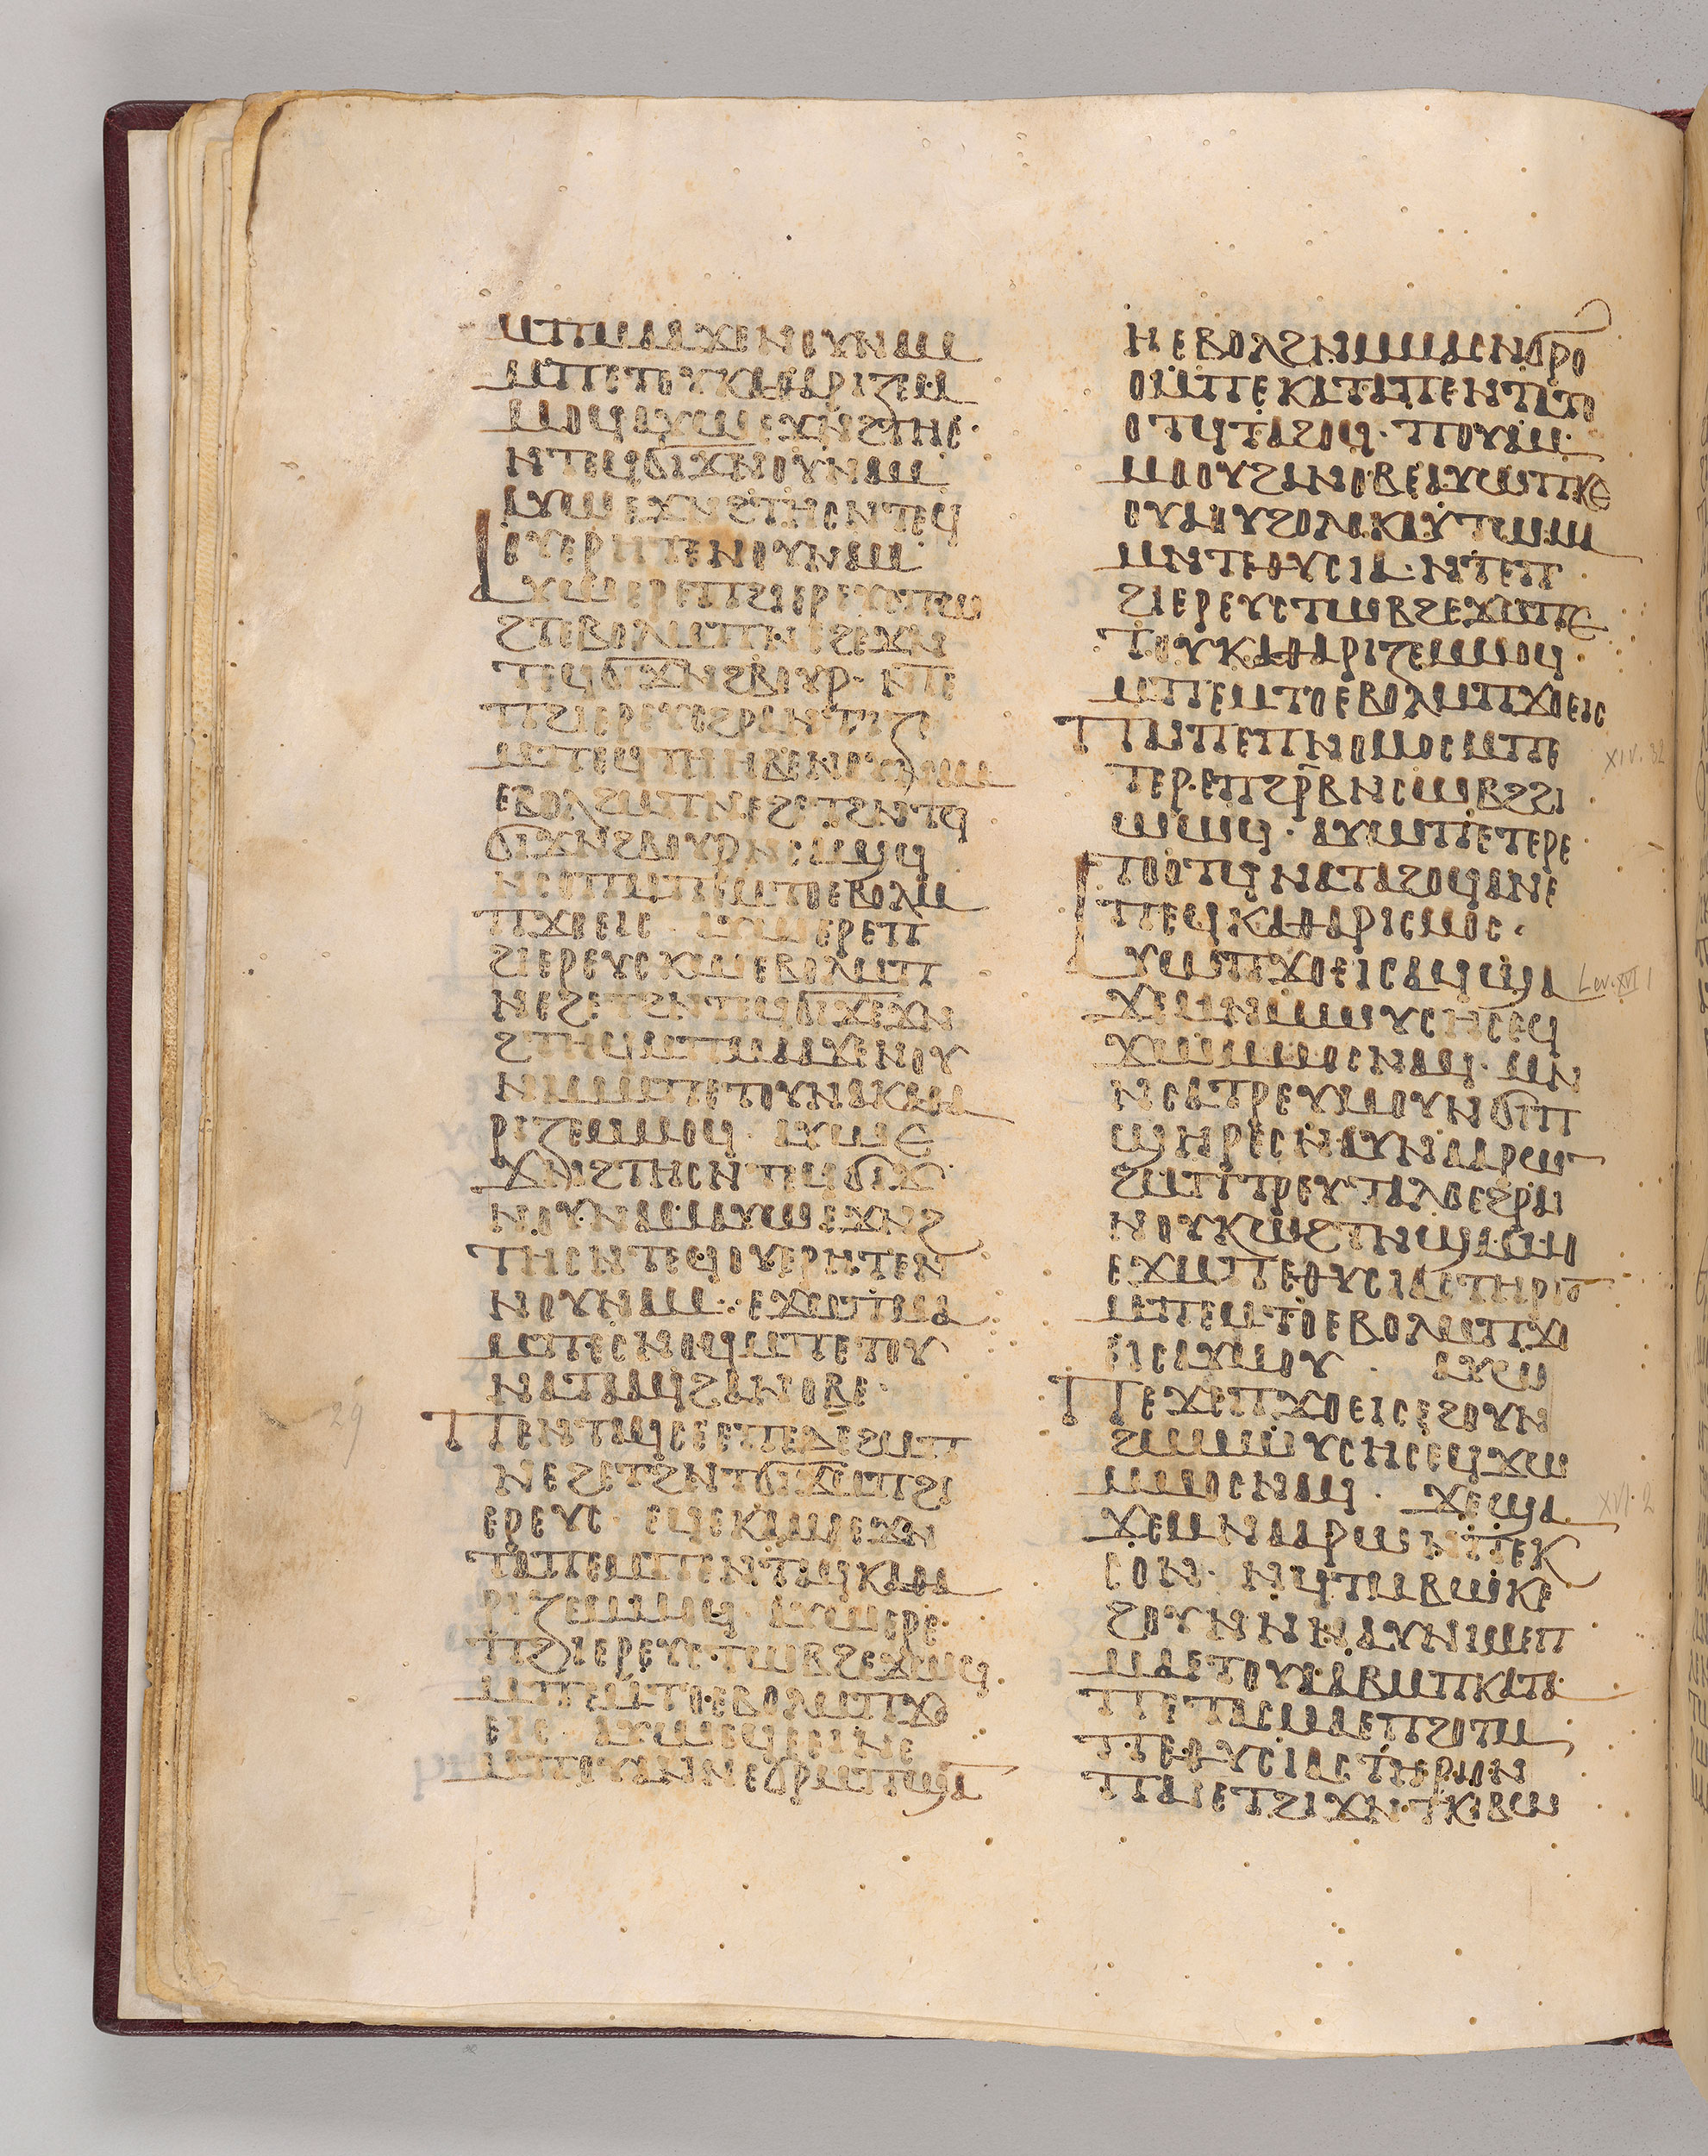 ⲙⲡⲙⲁⲁϫⲉ ⲛⲟⲩⲛⲁⲙ
ⲙⲡⲉⲧⲟⲩⲕⲁⲑⲁⲣⲓⲍⲉ ⲙ
ⲙⲟϥ ⲁⲩⲱ ⲉϫⲛ ⲑⲧⲏⲥ·
ⲛⲧⲉϥϭⲓϫ ⲛⲟⲩⲛⲁⲙ
ⲁⲩⲱ ⲉϫⲛ ϩⲧⲏⲥ ⲛⲧⲉϥ
ⲟⲩⲉⲣⲏⲧⲉ ⲛⲟⲩⲛⲁⲙ
ⲁⲩⲱ ⲉⲣⲉⲡϩⲓⲉⲣⲉⲩⲥ ⲡⲱ
ϩⲧ ⲉⲃⲟⲗ ⲙⲡⲛⲉϩ ⲉϫⲛ
ⲧⲉϥϭⲓϫ ⲛϩⲃⲟⲩⲣ· ⲛⲧⲉ
ⲡϩⲓⲉⲣⲉⲩⲥ ϩⲣⲁⲛⲧⲓⲍⲉ
ⲙⲡⲉϥⲧⲏⲏⲃⲉ ⲛⲟⲩⲛⲁⲙ
ⲉⲃⲟⲗ ϩⲙⲡⲛⲉϩ ⲉⲧϩⲛⲧϥ
ϭⲓϫ ⲛϩⲃⲟⲩⲣ ⲛⲥⲁϣϥ
ⲛⲥⲟⲡ ⲙⲡⲉⲙⲧⲟ ⲉⲃⲟⲗ ⲙ
ⲡϫⲟⲉⲓⲥ ⲁⲩⲱ ⲉⲣⲉⲡ
ϩⲓⲉⲣⲉⲩⲥ ⲕⲱ ⲉⲃⲟⲗ ⲙⲡ
ⲛⲉϩ ⲉⲧϩⲛⲧⲉϥϭⲓϫ ⲉϫⲛ
ϩⲧⲏϥ ⲙⲡⲙⲁⲁϫⲉ ⲛⲟⲩ
ⲛⲁⲙ ⲙⲡⲉⲧⲟⲩⲛⲁⲕⲁⲑⲁ
ⲣⲓⲍⲉ ⲙⲙⲟϥ· ⲁⲩⲱ ⲉ
ϫⲛ ϩⲧⲏⲥ ⲛⲧⲉϥϭⲓϫ
ⲛⲟⲩⲛⲁⲙ ⲁⲩⲱ ⲉϫⲛ ϩ
ⲧⲏⲥ ⲛⲧⲉϥⲟⲩⲉⲣⲏⲧⲉ ⲛ
ⲛⲟⲩⲛⲁⲙ· ⲉϫⲙⲡⲙⲁ
ⲙⲡⲉⲥⲛⲟϥ ⲙⲡⲉⲧⲟⲩ
ⲛⲁⲧⲁⲗⲟϥ ϩⲁ ⲛⲟⲃⲉ·
ⲡⲉⲛⲧⲁϥⲥⲉⲉⲡⲉ ⲇⲉ ϩⲙⲡ
ⲛⲉϩ ⲉⲧϩⲛⲧϭⲓϫ ⲙⲡϩⲓ
ⲉⲣⲉⲩⲥ· ⲉϥⲉⲕⲁⲁϥ ⲉϫⲛ
ⲧⲁⲡⲉ ⲙⲡⲉⲛⲧⲁϥⲕⲁⲑⲁ
ⲣⲓⲍⲉ ⲙⲙⲟϥ· ⲁⲩⲱ ⲉⲣⲉ
ⲡϩⲓⲉⲣⲉⲩⲥ ⲧⲱⲃϩ ⲉϫⲱϥ
ⲙⲡⲉⲙⲧⲟ ⲉⲃⲟⲗ ⲙⲡϫⲟ
ⲉⲓⲥ ⲁⲩⲱ ⲉϥⲉⲉⲓⲛⲉ
ⲙⲡⲟⲩⲁ ⲛⲛⲉϭⲣⲟⲙⲡϣⲁⲛ
ⲏ ⲉⲃⲟⲗ ϩⲛ ⲙⲙⲁⲥ ⲛϭⲣⲟ
ⲟⲙⲡⲉ ⲕⲁⲧⲁ ⲡⲉⲛⲧⲁⲧⲟ
ⲟⲧϥ ⲧⲁϩⲟϥ· ⲡⲟⲩⲁ ⲙ
ⲙⲟⲟⲩ ϩⲁ ⲛⲟⲃⲉ ⲁⲩⲱ ⲡⲕⲉ
ⲟⲩⲁ ⲉⲩϩⲟⲗⲟⲕⲁⲩⲧⲱⲙⲁ
ⲙⲛ ⲧⲉⲑⲩⲥⲓⲁ· ⲛⲧⲉⲡ
ϩⲓⲉⲣⲉⲩⲥ ⲧⲱⲃϩ ⲉϫⲙⲡⲉ
ⲧⲟⲩⲕⲁⲑⲁⲣⲓⲍⲉ ⲙⲙⲟϥ
ⲙⲡⲉⲙⲧⲟ ⲉⲃⲟⲗ ⲙⲡϫⲟⲉⲓⲥ
ⲡⲁⲓ ⲡⲉ ⲡⲛⲟⲙⲟⲥ ⲙⲡⲉ
ⲧⲉⲣⲉⲡϩⲣⲃ ⲛⲥⲱⲃϩ ϩⲓ
ⲱⲱϥ· ⲁⲩⲱ ⲡⲉⲧⲉⲣⲉ
ⲧⲟⲟⲧϥ ⲛⲁⲧⲁϩⲟϥ ⲁⲛ ⲉ
ⲡⲉϥⲕⲁⲑⲁⲣⲓⲥⲙⲟⲥ·
ⲁⲩⲱ ⲡϫⲟⲉⲓⲥ ⲁϥϣⲁ
ϫⲉ ⲙⲛ ⲙⲱⲩⲥⲏⲥ ⲉϥ
ϫⲱ ⲙⲙⲟⲥ ⲛⲁϥ· ⲙⲛ
ⲛⲥⲁⲧⲣⲉⲩⲙⲟⲩ ⲛϭⲓ ⲡ
ϣⲏⲣⲉ ⲥⲛⲁⲩ ⲛⲁⲁⲣⲱⲛ
ϩⲙⲡⲧⲣⲉⲩⲧⲁⲗⲟ ⲉϩⲣⲁⲓ
ⲛⲟⲩⲕⲱϩⲧ ⲛϣⲙⲙⲟ
ⲉϫⲙⲡⲉⲑⲩⲥⲓⲁⲥⲧⲏⲣⲓⲟⲛ
ⲙⲡⲉⲙⲧⲟ ⲉⲃⲟⲗ ⲙⲡϫⲟ
ⲉⲓⲥ ⲁⲩⲙⲟⲩ· ⲁⲩⲱ
ⲡⲉϫⲉ ⲡϫⲟⲉⲓⲥ ⲉϩⲟⲩⲛ
ϩⲙ ⲙⲱⲩⲥⲏⲥ ⲉϥϫⲱ
ⲙⲙⲟⲥ ⲛⲁϥ· ϫⲉ ϣⲁ
ϫⲉ ⲙⲛ ⲁⲁⲣⲱⲛ ⲡⲉⲕ
ⲥⲟⲛ· ⲛϥⲧⲙⲃⲱⲕ ⲉ
ϩⲟⲩⲛ ⲛⲛⲁⲩ ⲛⲓⲙ ⲉⲡ
ⲙⲁ ⲉⲧⲟⲩⲁⲁⲃ ⲙⲡⲕⲁⲧⲁ
ⲡⲉⲧⲁⲥⲙⲁ ⲉⲡϩⲟⲧⲙ
ⲡⲉⲑⲩⲥⲓⲁⲥⲧⲏⲣⲓⲟⲛ
ⲡⲁⲓ ⲉⲧϩⲓϫⲛ ⲧϭⲓⲃⲱ
XIV. 32
Lev. XVI 1
29
XVI. 2